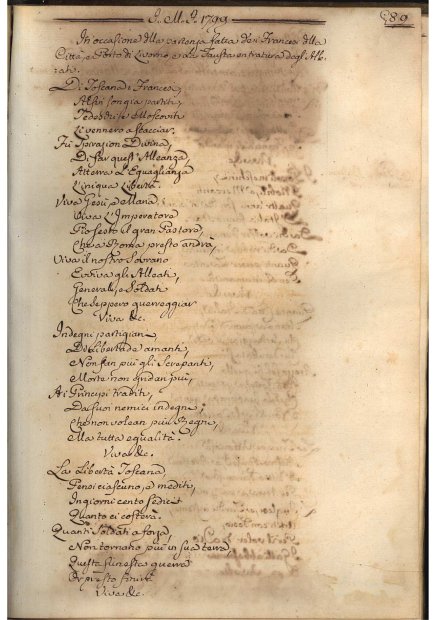 J. M. J. 1799
689
In occasione della partenza fatta dei Francesi dalla
Città, e Porto di Livorno, e Fausta entratura degli Alle-
ati.
Di Toscana i Francesi,
Alfin son già partiti,
Tedeschi, e Moscoviti
Li vennero a scacciar.
Fu Spirazion Divina,
Di far quest'Alleanza,
Atterra L'Eguaglianza
L'iniqua Libertà.
Viva Gesù, e Maria
Viva L'Imperatore
Pio Sesto il gran Pastore,
Che a Roma presto andrà,
Viva il nostro Sovrano
Evviva gli Alleati,
Generali, e Soldati
Che seppero guerreggiar
Viva &c.
Indegni partigiani
Di Libertà de amanti,
Non fan più gli
Morte non gridan più,
Ai Principi traditi,
Da suoi nemici indegni;
Che non volean più Regni,
Ma tutta egualità.
Viva &c.
La Libertà Toscana,
Pensi ciascuno, e mediti,
In giorni cento sedici
Quanto ci costerà.
Quanti Soldati a forza,
Non tornano più in sua terra
Questa funesta guerra
Or presto finirà
Viva &c.